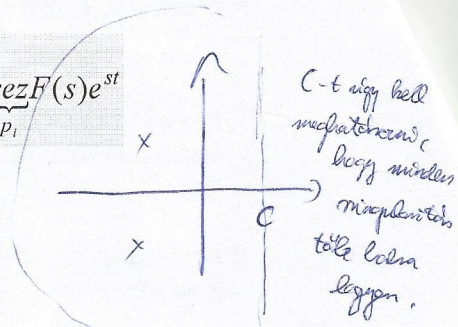 ezF(s)e^{st}
p_i
C-t úgy kell
meghatározni,
hogy minden
szingularitás
tőle balra
legyen.
C